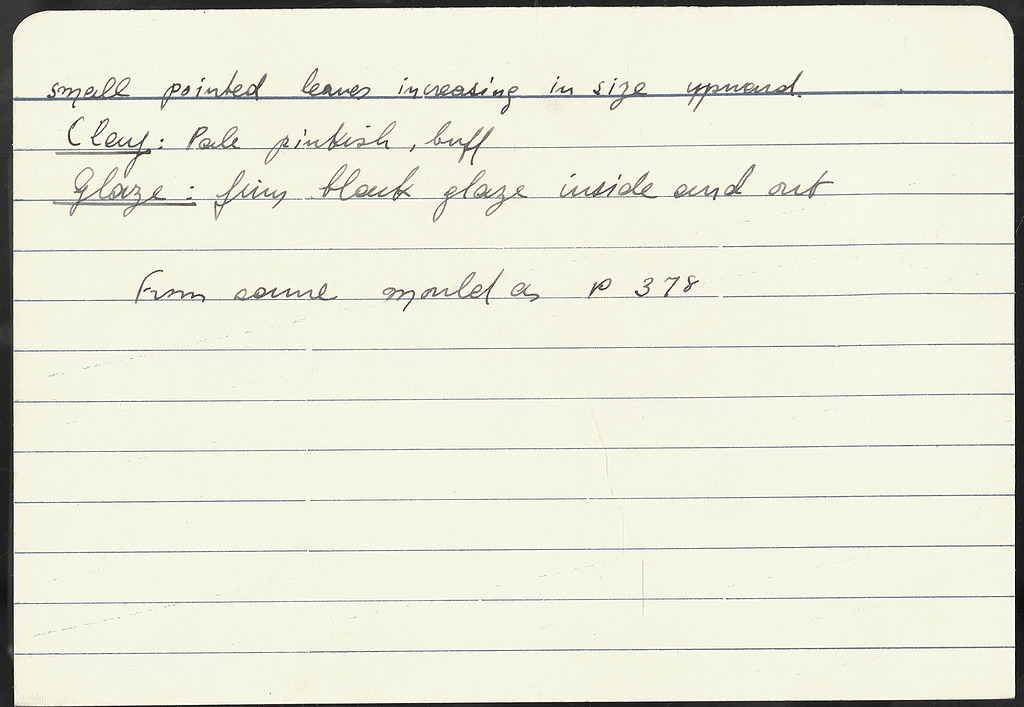 small pointed leaves increasing in size upward.
Clay: Pale pinkish, buff
Glaze: firm black glaze inside and out
From same mould as P 378